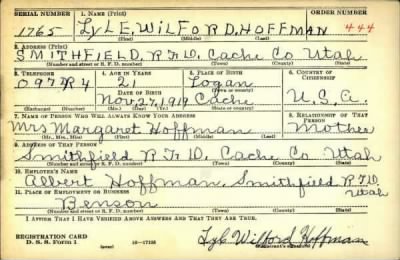 SERIAL NUMBER 1. NAME (Print) ORDER NUMBER
1765 LYLE WILFORD HOFFMAN 444
(First) (Middle) (Last)
2. ADDRESS (Print)
SMITHFIELD, R.F.D. Cache Co. Utah
(Number and street or R. F. D. number) (Town) (County) (State)
3. TELEPHONE 4. AGE IN YEARS 5. PLACE OF BIRTH 6. COUNTRY OF CITIZENSHIP
097R4 21 Logan
DATE OF BIRTH (Town or county)
Nov. 27, 1919 Cache U.S.A.
(Exchange) (Number) (Mo.) (Day) (Yr.) (State or country)
7. NAME OF PERSON WHO WILL ALWAYS KNOW YOUR ADDRESS 8. RELATIONSHIP OF THAT PERSON
Mrs Margaret Hoffman Mother
(Mr., Mrs., Miss) (First) (Middle) (Last)
9. ADDRESS OF THAT PERSON
Smithfield R.F.D. Cache Co. Utah
(Number and street or R. F. D. number) (Town) (County) (State)
10. EMPLOYER'S NAME
Albert Hoffman, Smithfield R.F.D. Utah
11. PLACE OF EMPLOYMENT OR BUSINESS
Benson
(Number and street or R. F. D. number) (Town) (County) (State)
I AFFIRM THAT I HAVE VERIFIED ABOVE ANSWERS AND THAT THEY ARE TRUE.
REGISTRATION CARD
D. S. S. Form 1 (over) 16—17105 Lyle Wilford Hoffman
(Registrant's signature)